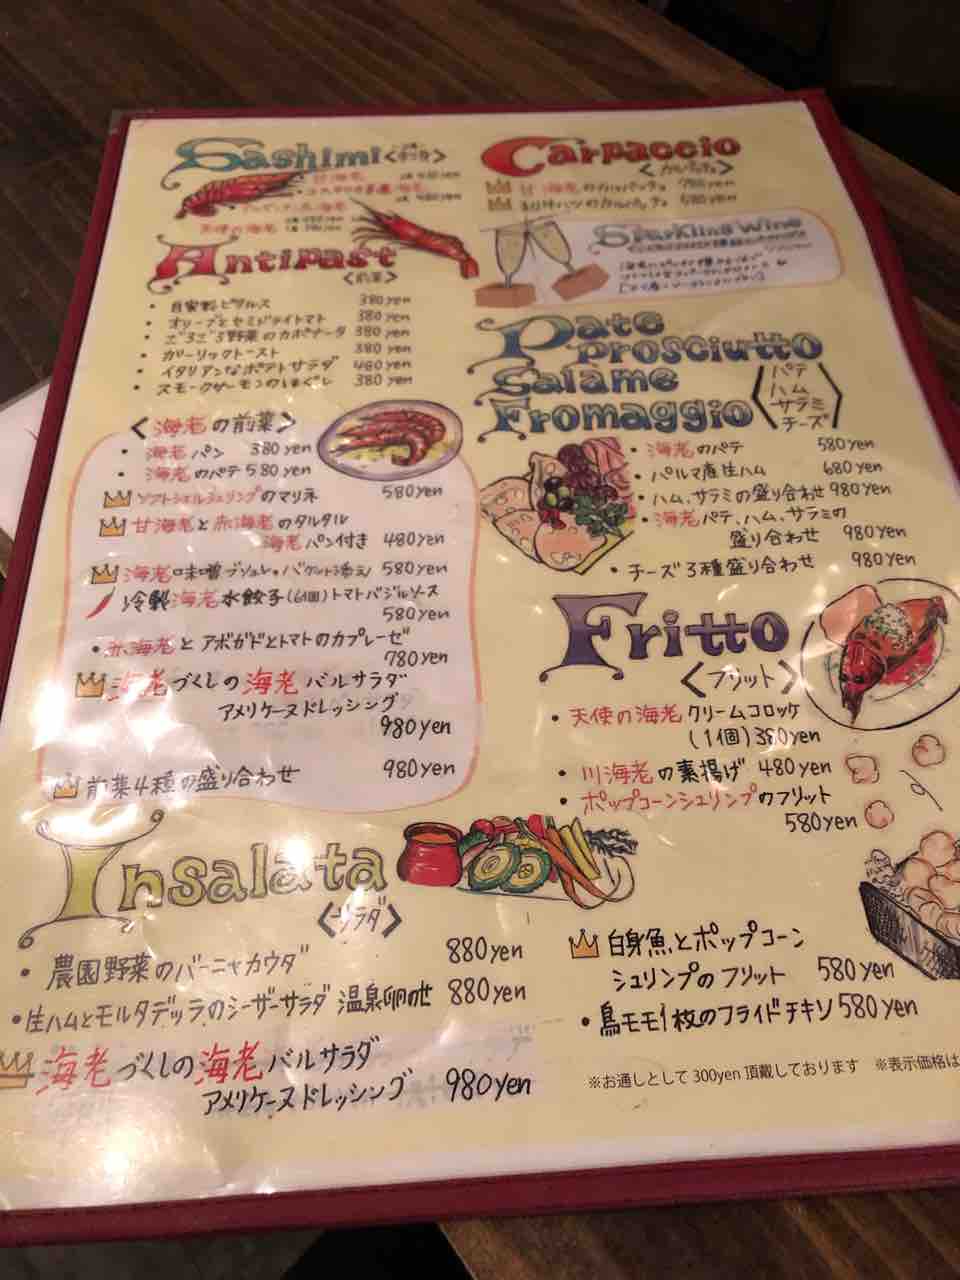 Sashimi
Antipast
<前菜>
• 自家製ピクルス 380yen
• オリーブとセミドライトマト 380yen
• ごろごろ野菜のカポナータ 380yen
• ガーリックトースト 380yen
• イタリアンなポテトサラダ 480yen
• スモークサーモンのほぐし 380yen
<海老の前菜>
• 海老パン 380yen
• 海老のパテ 580yen
ソフトシェルシュリンプのマリネ 580yen
甘海老と赤海老のタルタル
海老パン付き 480yen
海老味噌ブリュレ・バケット添え 580yen
冷製海老水餃子(6個)トマトバジルソース
580yen
• 赤海老とアボガドとトマトのカプレーゼ
780yen
海老づくしの海老バルサラダ
アメリケーヌドレッシング
980yen
前菜4種の盛り合わせ 980yen
Insalata
<サラダ>
• 農園野菜のバーニャカウダ 880yen
• 生ハムとモルタデッラのシーザーサラダ 温泉卵のせ 880yen
海老づくしの海老バルサラダ
アメリケーヌドレッシング 980yen
Carpaccio
<カルパッチョ>
甘海老のカルパッチョ 780yen
のカルパッチョ 580yen
Sparkling Wine
Pate
prosciutto
Salame
Fromaggio
パテ
ハム
サラミ
チーズ
• 海老のパテ 580yen
• パルマ産生ハム 680yen
• ハム、サラミの盛り合わせ 980yen
• 海老パテ、ハム、サラミの
盛り合わせ 980yen
• チーズ3種盛り合わせ 980yen
Fritto
<フリット>
• 天使の海老クリームコロッケ
(1個)380yen
• 川海老の素揚げ 480yen
• ポップコーンシュリンプのフリット
580yen
白身魚とポップコーン
シュリンプのフリット 580yen
• 鳥モモ1枚のフライドチキン 580yen
※お通しとして300yen頂戴しております ※表示価格は